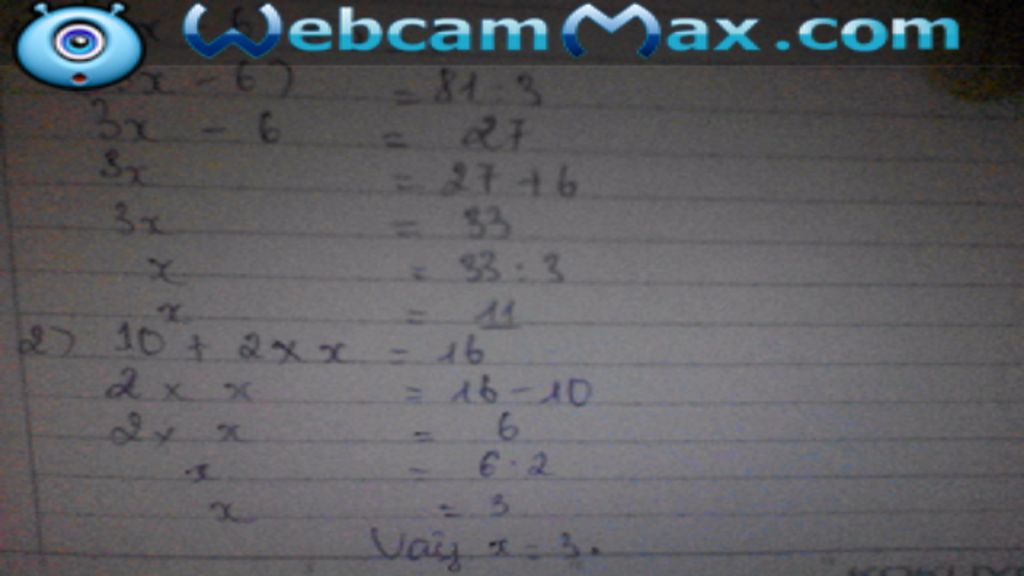 WebcamMax.com
x - 6) = 81 : 3
3x - 6 = 27
3x = 27 + 6
3x = 33
x = 33 : 3
x = 11
2) 10 + 2 x x = 16
2 x x = 16 - 10
2 x x = 6
x = 6 : 2
x = 3
Vậy x = 3.